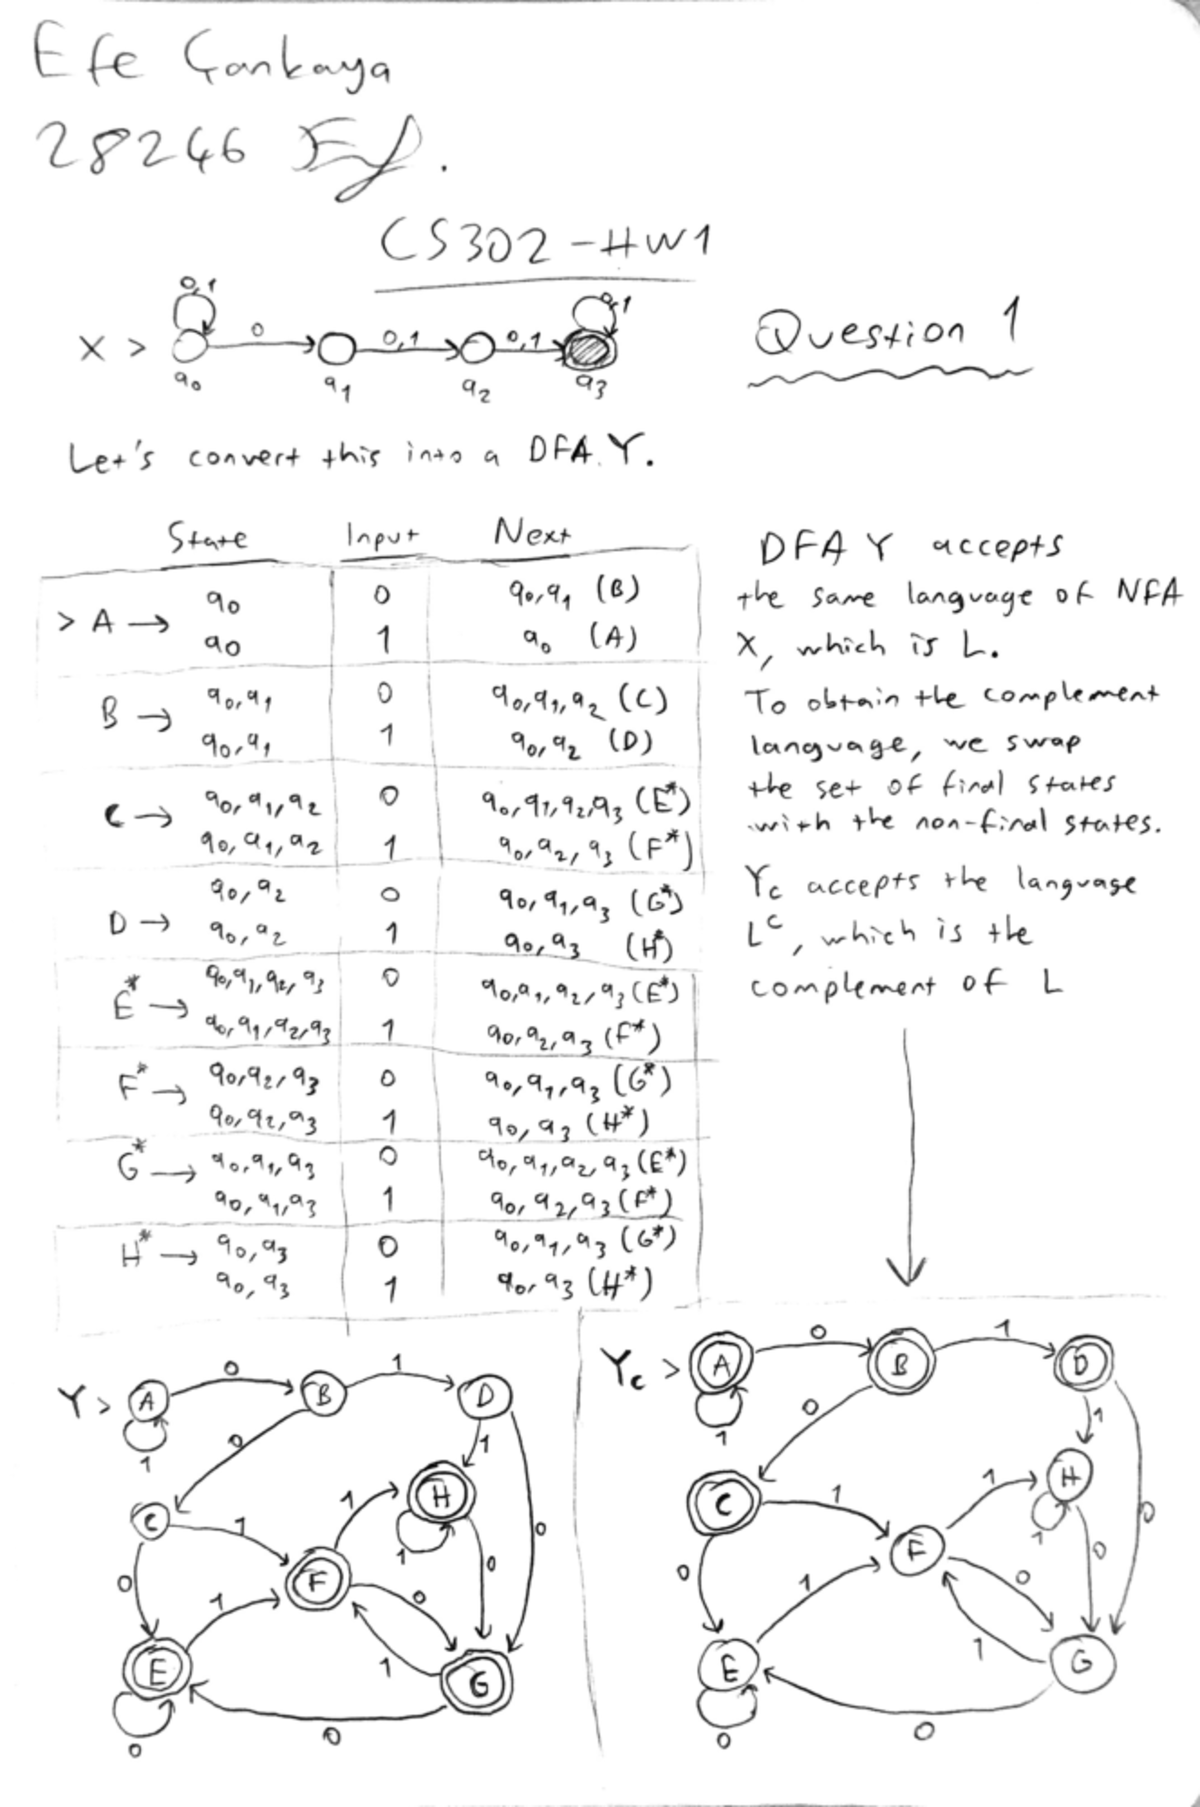 Efe Çankaya
28246
CS302-HW1
Question 1
0,1 0,1
X > 0 0,1 0,1
q0 q1 q2 q3
Let's convert this into a DFA Y.
State Input Next
> A → q0 0 q0,q1 (B)
q0 1 q0 (A)
B → q0,q1 0 q0,q1,q2 (C)
q0,q1 1 q0,q2 (D)
C → q0,q1,q2 0 q0,q1,q2,q3 (E*)
q0,q1,q2 1 q0,q2,q3 (F*)
D → q0,q2 0 q0,q1,q3 (G*)
q0,q2 1 q0,q3 (H*)
E* → q0,q1,q2,q3 0 q0,q1,q2,q3 (E*)
q0,q1,q2,q3 1 q0,q2,q3 (F*)
F* → q0,q2,q3 0 q0,q1,q3 (G*)
q0,q2,q3 1 q0,q3 (H*)
G* → q0,q1,q3 0 q0,q1,q2,q3 (E*)
q0,q1,q3 1 q0,q2,q3 (F*)
H* → q0,q3 0 q0,q1,q3 (G*)
q0,q3 1 q0,q3 (H*)
DFA Y accepts
the same language of NFA
X, which is L.
To obtain the complement
language, we swap
the set of final states
with the non-final states.
Yc accepts the language
L^c, which is the
complement of L
Y > A 0 B 1 D
1 0 1
C 1 1 H
0 F 1 0 0
1 0
E 1 G
0 0
Yc > A 0 B 1 D
1 0 1
C 1 1 H
0 F 1 0 0
1 0
E 1 G
0 0